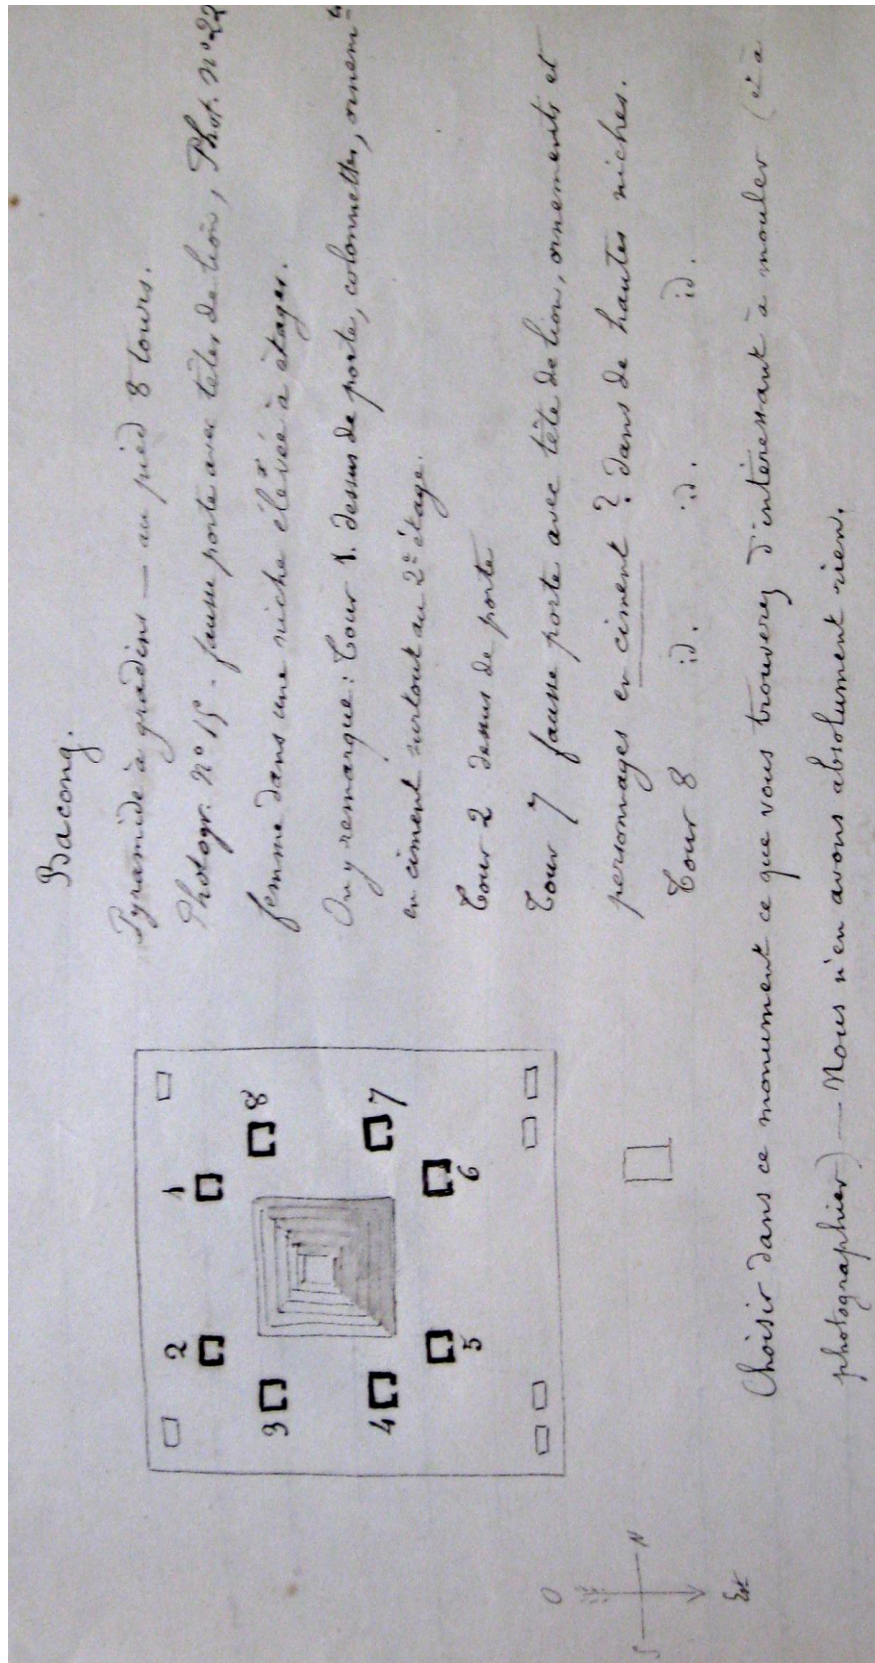 Bacong.
Pyramide à gradins — au pied 8 tours.
Photogr. N° 15 - fausse porte avec têtes de lion, Phot. N° 22
femme dans une niche élevée à étages.
On y remarque : Tour 1. dessus de porte, colonnettes, ornemts
en ciment surtout au 2e étage.
Tour 2 dessus de porte
Tour 7 fausse porte avec tête de lion, ornements et
personnages en ciment ? dans de hautes niches.
Tour 8 id. id. id.
Choisir dans ce monument ce que vous trouverez d'intéressant à mouler (et à
photographier) — Nous n'en avons absolument rien.
1
2
3
4
5
6
7
8
O
S N
Est